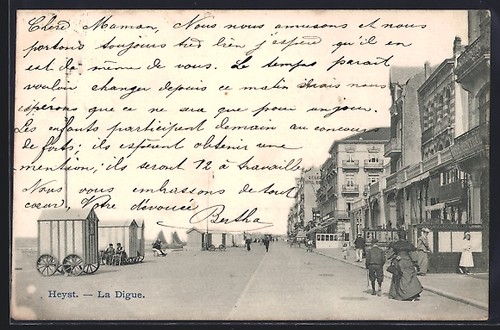 Chère Maman, Nous nous amusons et nous
portons toujours très bien j'espère qu'il en
est de même de vous. Le temps parait
vouloir changer depuis ce matin mais nous
espérons que ce ne sera que pour un jour.
Les enfants participent demain au concours
de forts, ils espèrent obtenir une
mention; ils seront 12 à travailler
Nous vous embrassons de tout
coeur, Votre dévouée Bertha
Heyst. — La Digue.